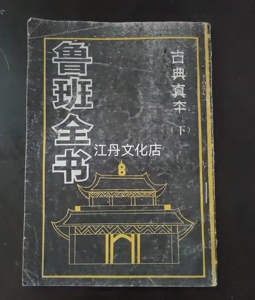 鲁班全书
古典真本
（下）
江丹文化店